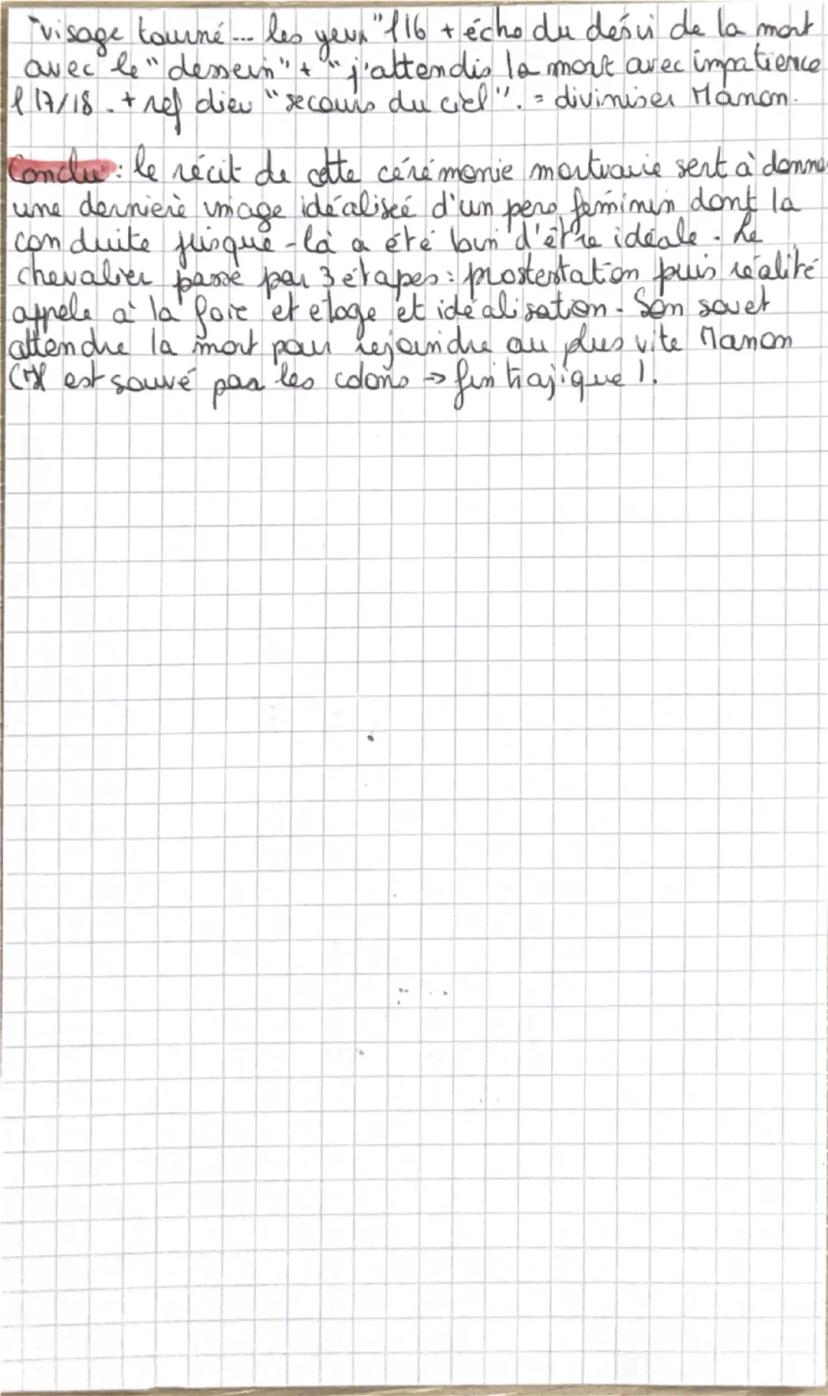 "visage tourné... les yeux" l16 + écho du désir de la mort
avec le "dessein" + "j'attendis la mort avec impatience
l 17/18. + ref dieu "secours du ciel". = diviniser Manon.
Conclu : le récit de cette cérémonie mortuaire sert à donne
une derniere image idéalisée d'un perso féminin dont la
conduite jusque-là a été loin d'être idéale. Le
chevalier passe par 3 étapes : prostestation puis réalité
appele à la foie et eloge et idéalisation. Son souet
attendre la mort pour rejoindre au plus vite Manon
est sauvé par les colons → fin trajique !.